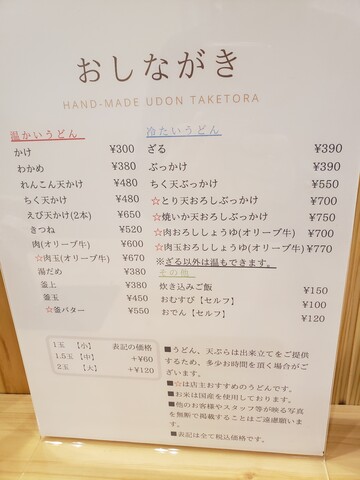 おしながき
HAND-MADE UDON TAKETORA
温かいうどん
かけ ¥300
わかめ ¥380
れんこん天かけ ¥480
ちく天かけ ¥480
えび天かけ(2本) ¥650
きつね ¥520
肉(オリーブ牛) ¥600
☆肉玉(オリーブ牛) ¥670
湯だめ ¥380
釜上 ¥380
釜玉 ¥450
☆釜バター ¥550
冷たいうどん
ざる ¥390
ぶっかけ ¥390
ちく天ぶっかけ ¥550
☆とり天おろしぶっかけ ¥700
☆焼いか天おろしぶっかけ ¥750
☆肉おろししょうゆ(オリーブ牛) ¥700
☆肉玉おろししょうゆ(オリーブ牛) ¥770
※ざる以外は温もできます。
その他
炊き込みご飯 ¥150
おむすび【セルフ】 ¥100
おでん【セルフ】 ¥120
1玉 【小】 表記の価格
1.5玉【中】 +¥60
2玉 【大】 +¥120
■うどん、天ぷらは出来立てをご提供
するため、多少お時間を頂く場合がご
ざいます。
■☆は店主おすすめのうどんです。
■お米は国産を使用しております。
■他のお客様やスタッフ等が映る写真
を無断で掲載することはご遠慮願いま
す。
■表記は全て税込価格です。